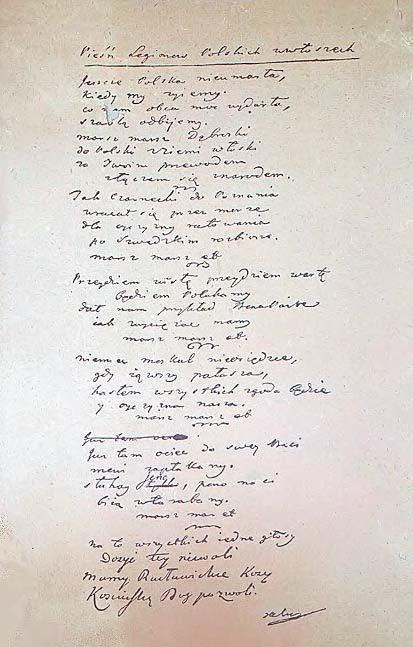 Pieśń Legionow Polskich we włoszech
Jeszcze Polska nieumarła,
kiedy my żyiemy.
co nam obca moc wydarła,
szablą odbiiemy.
marsz marsz Dąbrski
do Polski z ziemi włoski
za Twoim przewodem
złączem się znarodem.
Jak Czarnecki do Poznania
wracał się przez morze
dla oyczyzny ratowania
po Szwedzkim rozbiorze.
marsz marsz etc
Przeydziem wisłę przeydziem wartę
będziem Polakamy
dał nam przykład Bonaparte
iak zwyciężać mamy
marsz marsz etc.
niemiec moskal nieosiędzie,
gdy iąwszy pałasza,
hasłem wszystkich zgoda będzie
y oyczyzna nasza.
marsz marsz etc
Jus tam ociec
Jus tam ociec do swey Basi
mowi zapłakany.
słuchay ieno, pono nasi
biią w tarabany.
marsz mar etc
na to wszystkich iedne głosy
Dosyć tey niewoli
Mamy Racławickie Kosy
Kosciuszkę Bog pozwoli.